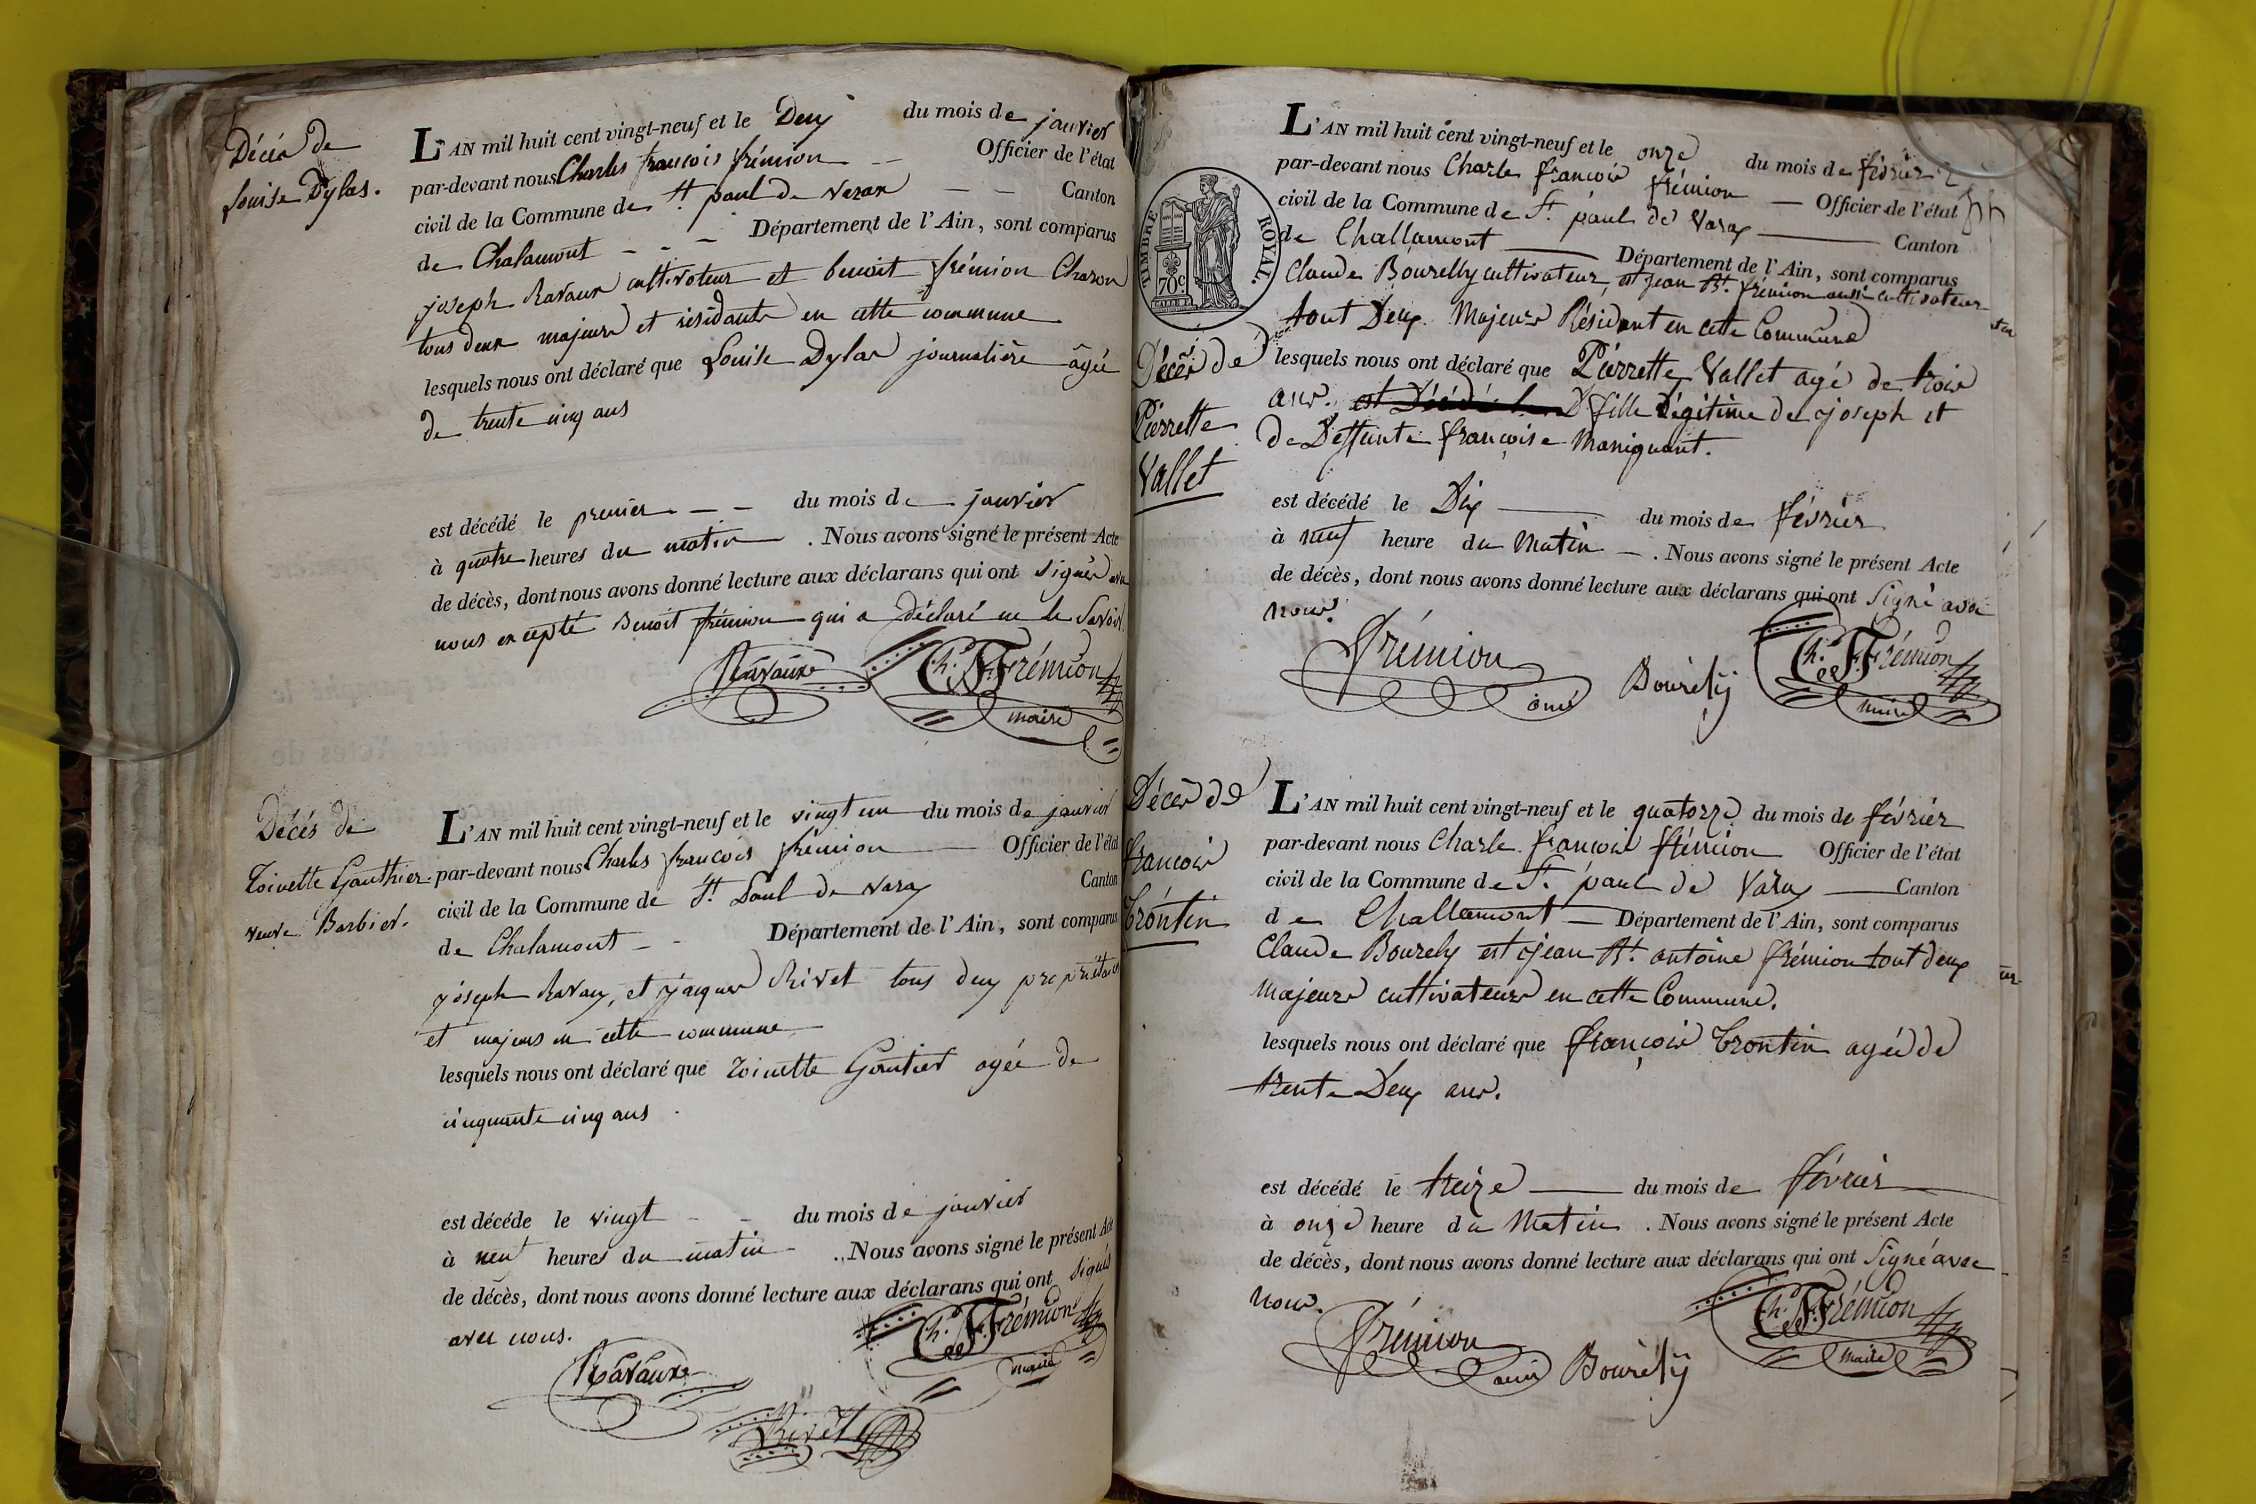 Décès de
Louise Dylas.
L'AN mil huit cent vingt-neuf et le Deux du mois de janvier
par-devant nous Charles françois frémion Officier de l'état
civil de la Commune de St. paul de varax Canton
de Chalamont Département de l'Ain, sont comparus
joseph Ravaux cultivateur et benoit frémion Charon
tous deux majeurs et résidants en cette commune
lesquels nous ont déclaré que Louise Dylas journalière âgée
de trente cinq ans
est décédé le premier du mois de janvier
à quatre heures du matin. Nous avons signé le présent Acte
de décès, dont nous avons donné lecture aux déclarans qui ont signés avec
nous excepté Benoit frémion qui a déclaré ne le savoir.
Ravaux Ch. F. Frémion
maire
Décès de
Toinette Gauthier
veuve Barbier.
L'AN mil huit cent vingt-neuf et le vingt un du mois de janvier
par-devant nous Charles francois frémion Officier de l'état
civil de la Commune de St. Paul de varax Canton
de Chalamont Département de l'Ain, sont comparus
joseph Ravaux, et jacques Rivet tous deux propriétaires
et majeurs en cette commune
lesquels nous ont déclaré que Toinette Gautier agée de
cinquante cinq ans.
est décédé le vingt du mois de janvier
à neuf heures du matin. Nous avons signé le présent Acte
de décès, dont nous avons donné lecture aux déclarans qui ont signés
avec nous.
Ch. F. Frémion
maire
Ravaux
Rivet
TIMBRE ROYAL.
70c
L'AN mil huit cent vingt-neuf et le onze du mois de février
par-devant nous Charle françois frémion Officier de l'état
civil de la Commune de St. paul de Varax Canton
de Challamont Département de l'Ain, sont comparus
Claude Bourelly cultivateur, est jean Bt. frémion aussi cultivateur
tout Deux Majeurs Résidant en cette Commune
Décès de
Pierrette
Vallet
lesquels nous ont déclaré que Pierrette Vallet agé de trois
ans. est Décédé fille légitime de joseph et
de Deffunte françoise Maniquant.
est décédé le Dix du mois de février
à neuf heure du Matin. Nous avons signé le présent Acte
de décès, dont nous avons donné lecture aux déclarans qui ont Signé avec
nous.
Frémion Bourely Ch. F. Frémion
maire
Décès de
francois
Trontin
L'AN mil huit cent vingt-neuf et le quatorze du mois de février
par-devant nous Charle françois frémion Officier de l'état
civil de la Commune de St. paul de Varax Canton
de Challamont Département de l'Ain, sont comparus
Claude Bourely est jean Bt. antoine frémion tout deux
majeurs cultivateurs en cette Commune.
lesquels nous ont déclaré que françois Trontin agée de
trente Deux ans.
est décédé le treize du mois de février
à onze heure du Matin. Nous avons signé le présent Acte
de décès, dont nous avons donné lecture aux déclarans qui ont Signé avec
nous.
Frémion Bourely Ch. F. Frémion
maire